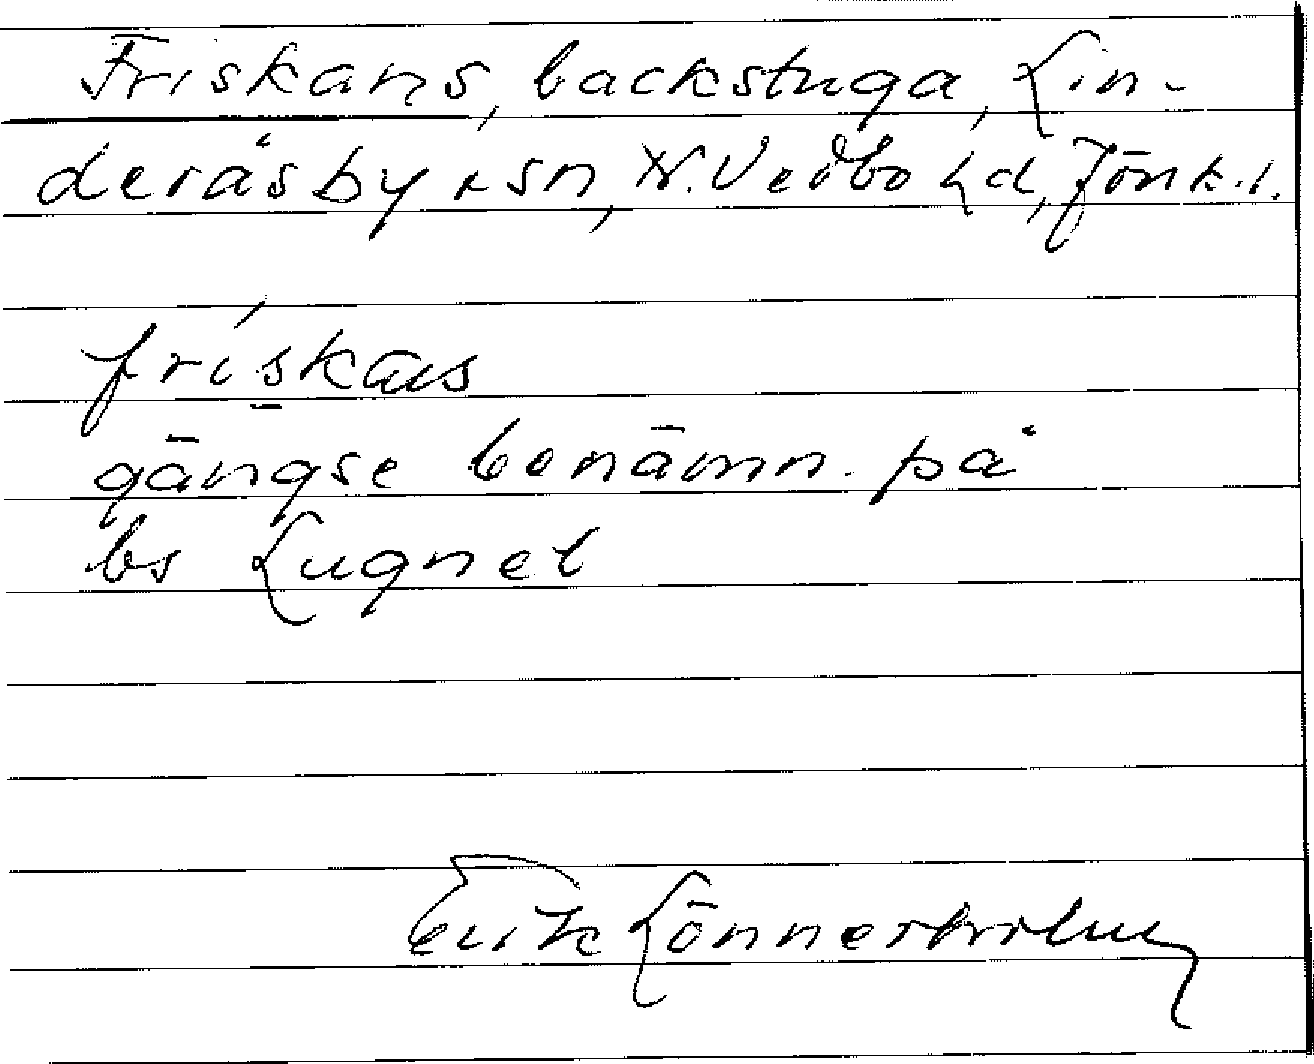 Friskans, backstuga, Lin-
deråsby rsn, N. Vedbo hd, Jönk. l.
friskans
gängse benämn. på
bs Lugnet
Erik Lönnerholm